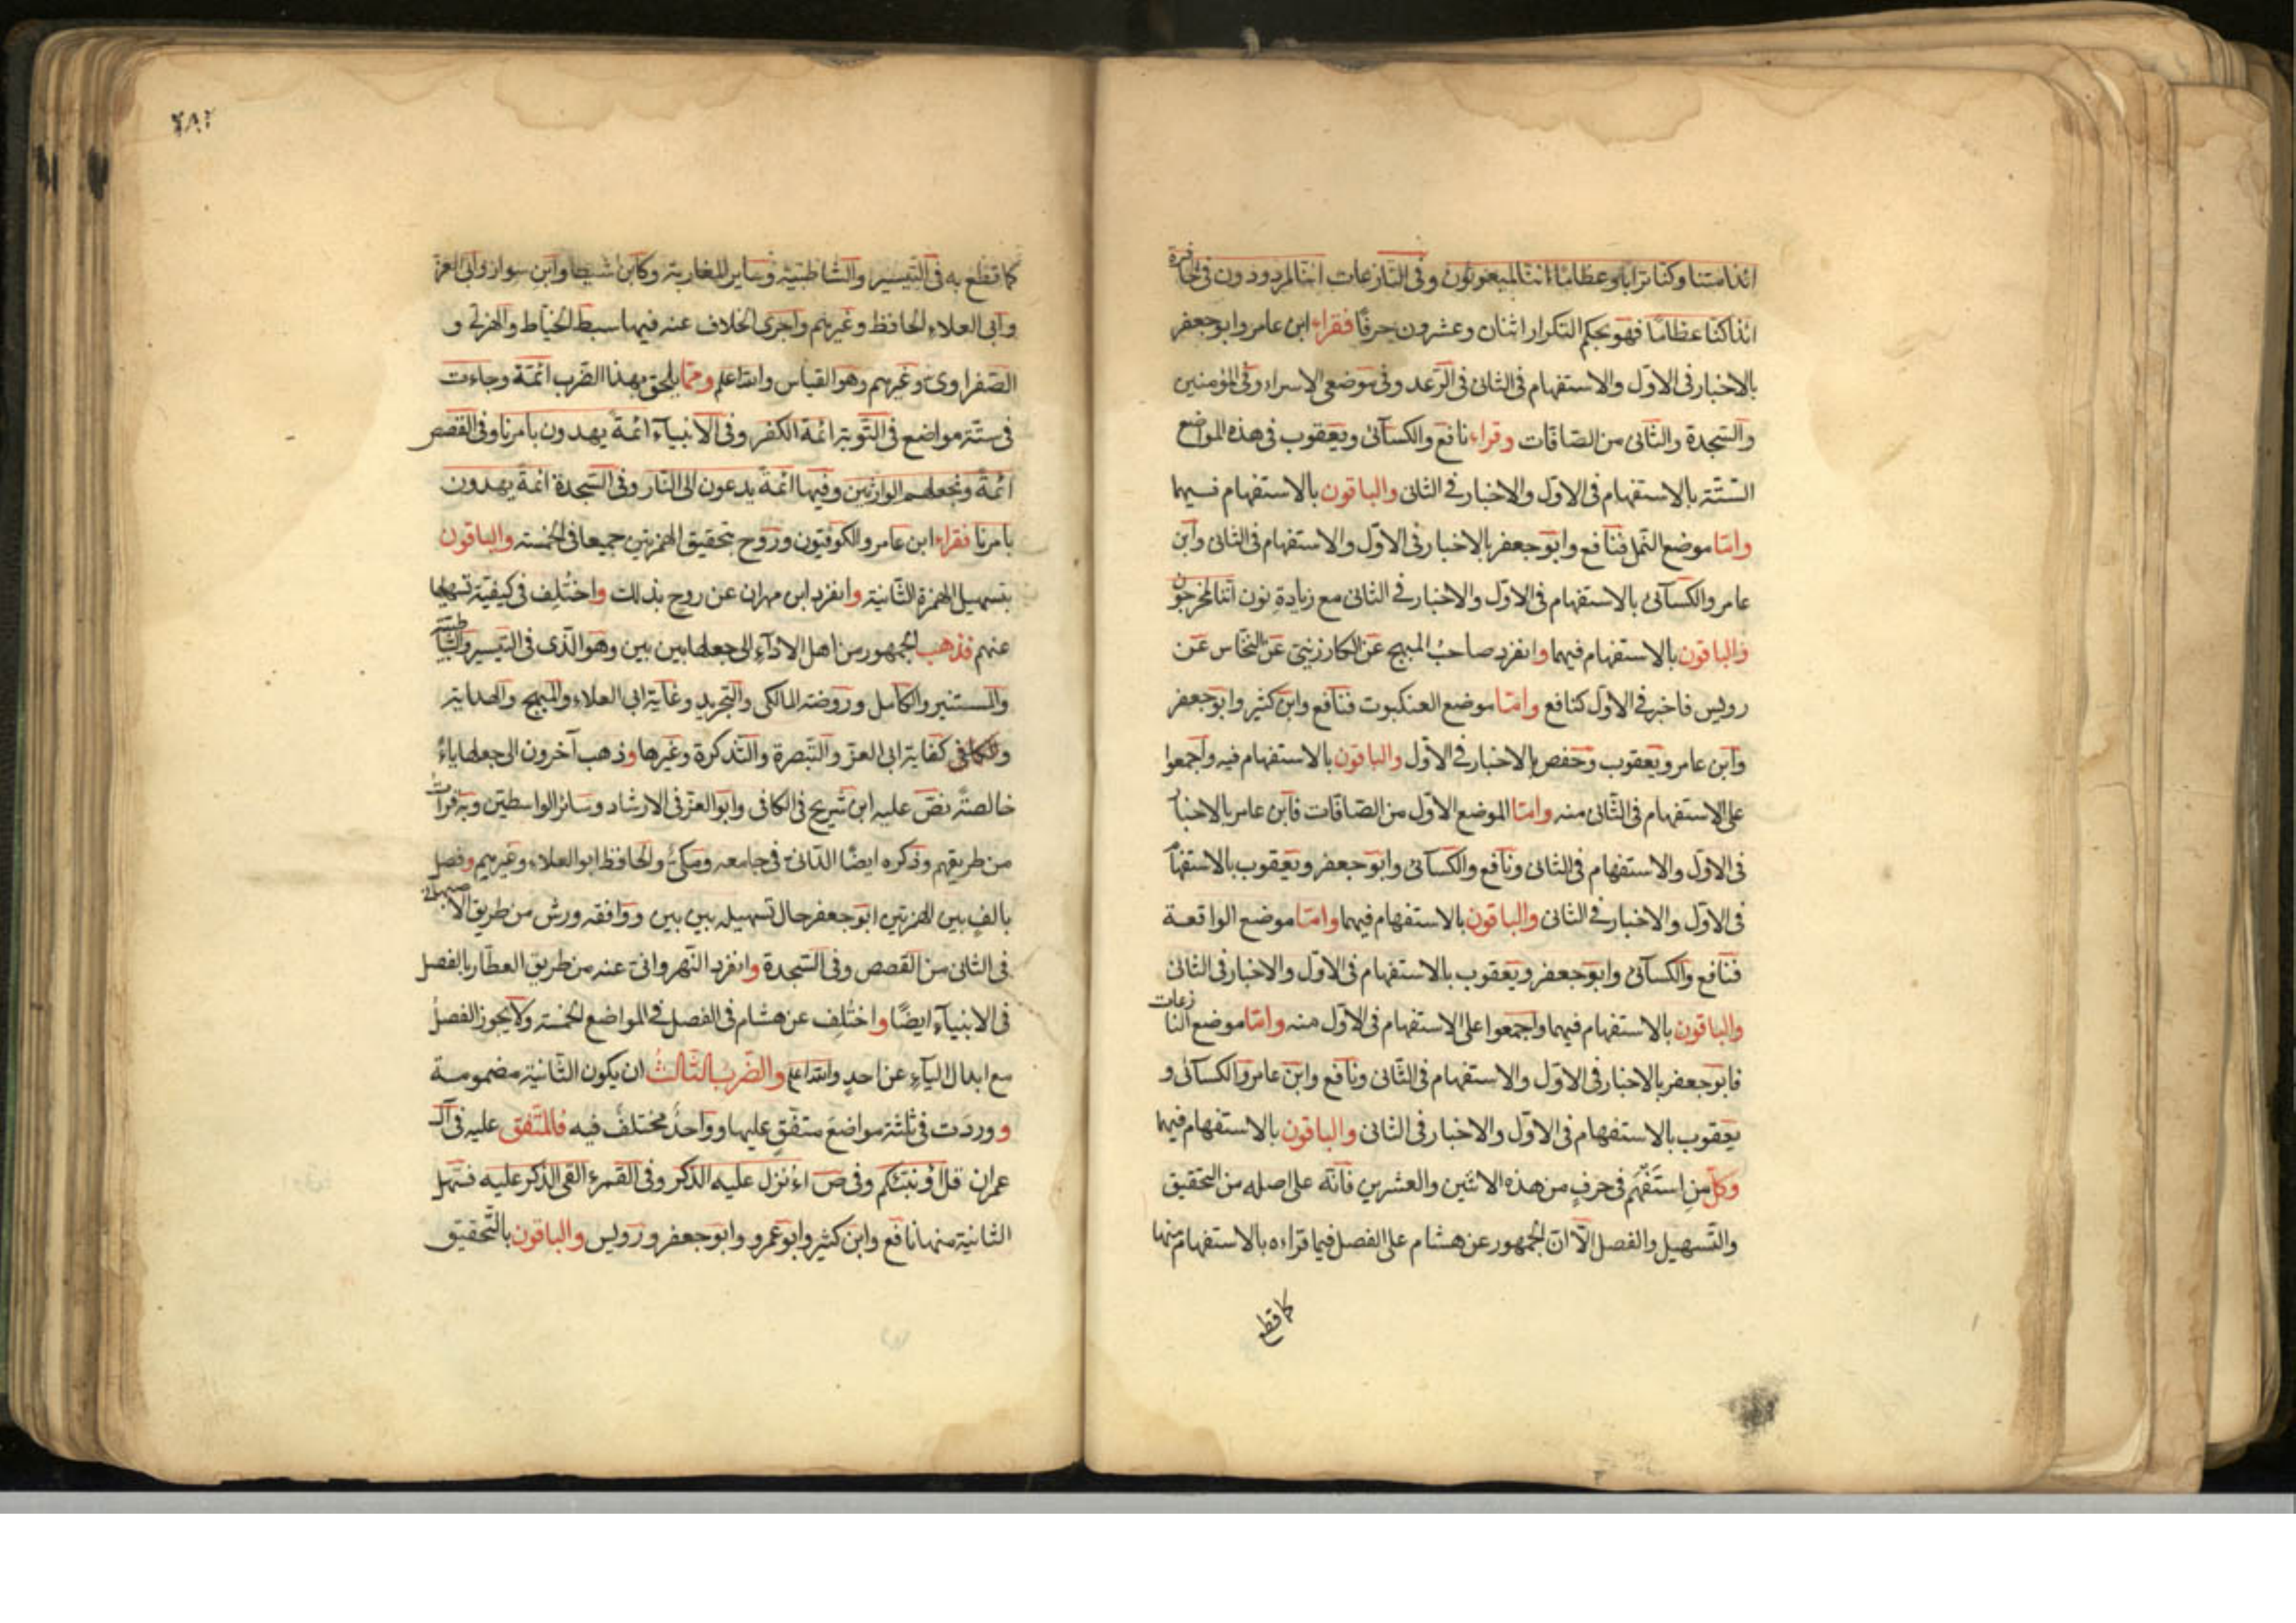 ائذا متنا وكنا ترابا وعظاما ائنا لمبعوثون وفى النازعات ائنا لمردودون فى الحافرة
ائذا كنا عظاما فهو بحكم التكرار اثنان وعشرون حرفا فقراء ابن عامر وابو جعفر
بالاخبار فى الاول والاستفهام فى الثانى فى الرعد وفى موضعى الاسراء وفى المؤمنين
والسجدة والثانى من الصافات وقراء نافع والكسآئى ويعقوب فى هذه المواضع
الستة بالاستفهام فى الاول والاخبار فى الثانى والباقون بالاستفهام فيهما
وامّا موضع النمل فنافع وابو جعفر بالاخبار فى الاول والاستفهام فى الثانى وابن
عامر والكسآئى بالاستفهام فى الاول والاخبار فى الثانى مع زيادة نون اننا لمخرجون
والباقون بالاستفهام فيهما وانفرد صاحب المبهج عن الكارزينى عن النخاس عن
رويس فاخبر فى الاول كنافع وامّا موضع العنكبوت فنافع وابن كثير وابو جعفر
وابن عامر ويعقوب وحفص بالاخبار فى الاول والباقون بالاستفهام فيه واجمعوا
على الاستفهام فى الثانى منه وامّا الموضع الاول من الصافات فابن عامر بالاخبار
فى الاول والاستفهام فى الثانى ونافع والكسآئى وابو جعفر ويعقوب بالاستفهام
فى الاول والاخبار فى الثانى والباقون بالاستفهام فيهما وامّا موضع الواقعة
فنافع والكسآئى وابو جعفر ويعقوب بالاستفهام فى الاول والاخبار فى الثانى
والباقون بالاستفهام فيهما واجمعوا على الاستفهام فى الاول منه وامّا موضع النازعات
فابو جعفر بالاخبار فى الاول والاستفهام فى الثانى ونافع وابن عامر والكسآئى و
يعقوب بالاستفهام فى الاول والاخبار فى الثانى والباقون بالاستفهام فيهما
وكل من استفهم فى حرف من هذه الاثنين والعشرين فانه على اصله من التحقيق
والتسهيل والفصل الّا انّ الجمهور عن هشام على الفصل فيما قراءه بالاستفهام منها
كما قطع
٢٨٢
كما قطع به فى التيسير والشاطبية وساير المغاربة وكابن شيطا وابن سوار وابى العز
وابى العلاء الحافظ وغيرهم واجرى الخلاف عنه فيها سبط الخياط والهذلى و
الصفراوى وغيرهم وهو القياس والله اعلم وممّا يلحق بهذا الضرب ائمّة وجاءت
فى ستة مواضع فى التوبة ائمة الكفر وفى الانبيآء ائمة يهدون بامرنا وفى القصص
ائمة ونجعلهم الوارثين وفيها ائمة يدعون الى النار وفى السجدة ائمة يهدون
بامرنا فقراء ابن عامر والكوفيون وروح بتحقيق الهمزتين جميعا فى الخمسة والباقون
بتسهيل الهمزة الثانية وانفرد ابن مهران عن روح بذلك واختلف فى كيفية تسهيلها
عنهم فذهب الجمهور من اهل الادآء الى جعلها بين بين وهو الّذى فى التيسير والشاطبية
والمستنير والكامل وروضة المالكى والتجريد وغاية ابى العلاء والمبهج والهداية
والكافى كفاية ابى العز والتبصرة والتذكرة وغيرها وذهب آخرون الى جعلها ياءً
خالصةً نصّ عليه ابن شريح فى الكافى وابو العز فى الارشاد وسائر الواسطيين وبه قرأت
من طريقهم وذكره ايضًا الدانى فى جامعه ومكى والحافظ ابو العلاء وغيرهم وفصل
بالف بين الهمزتين ابو جعفر حال تسهيله بين بين ووافقه ورش من طريق الاصبهانى
فى الثانى من القصص وفى السجدة وانفرد النهروانى عنه من طريق العطار بالفصل
فى الانبيآء ايضًا واختلف عن هشام فى الفصل فى المواضع الخمسة ولا يجوز الفصل
مع ابدال اليآء عن احدٍ والله اعلم والضرب الثالث ان يكون الثانية مضمومة
ووردت فى ثلثة مواضع متفق عليها وواحدٌ مختلف فيه فالمتفق عليه فى آل
عمران قل اؤنبئكم وفى ص اءُنزل عليه الذكر وفى القمر ءالقى الذكر عليه فسهّل
الثانية منها نافع وابن كثير وابو عمرو وابو جعفر ورويس والباقون بالتحقيق